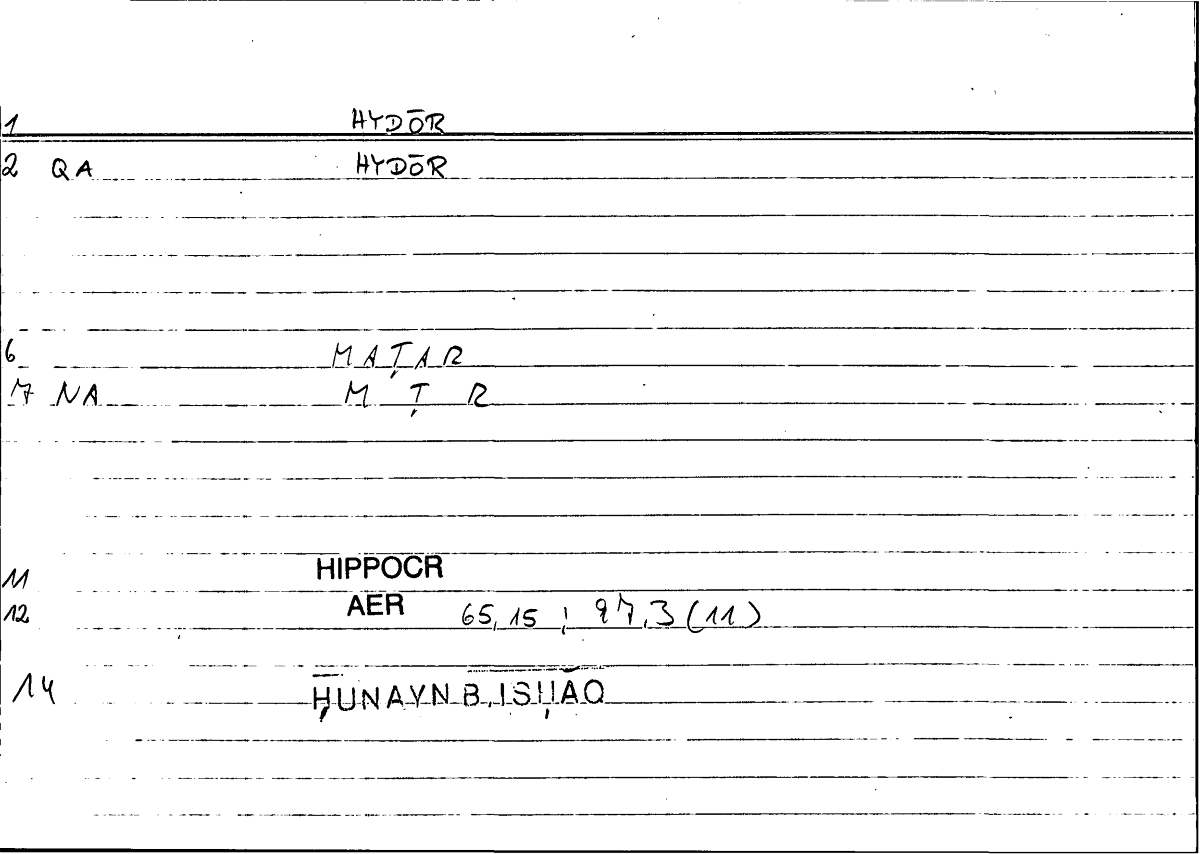 1 HYDŌR
2 QA HYDŌR
6 MAṬAR
7 NA M Ṭ R
11 HIPPOCR
12 AER 65,15 ; 97,3 (11)
14 ḤUNAYN B. ISḤĀQ